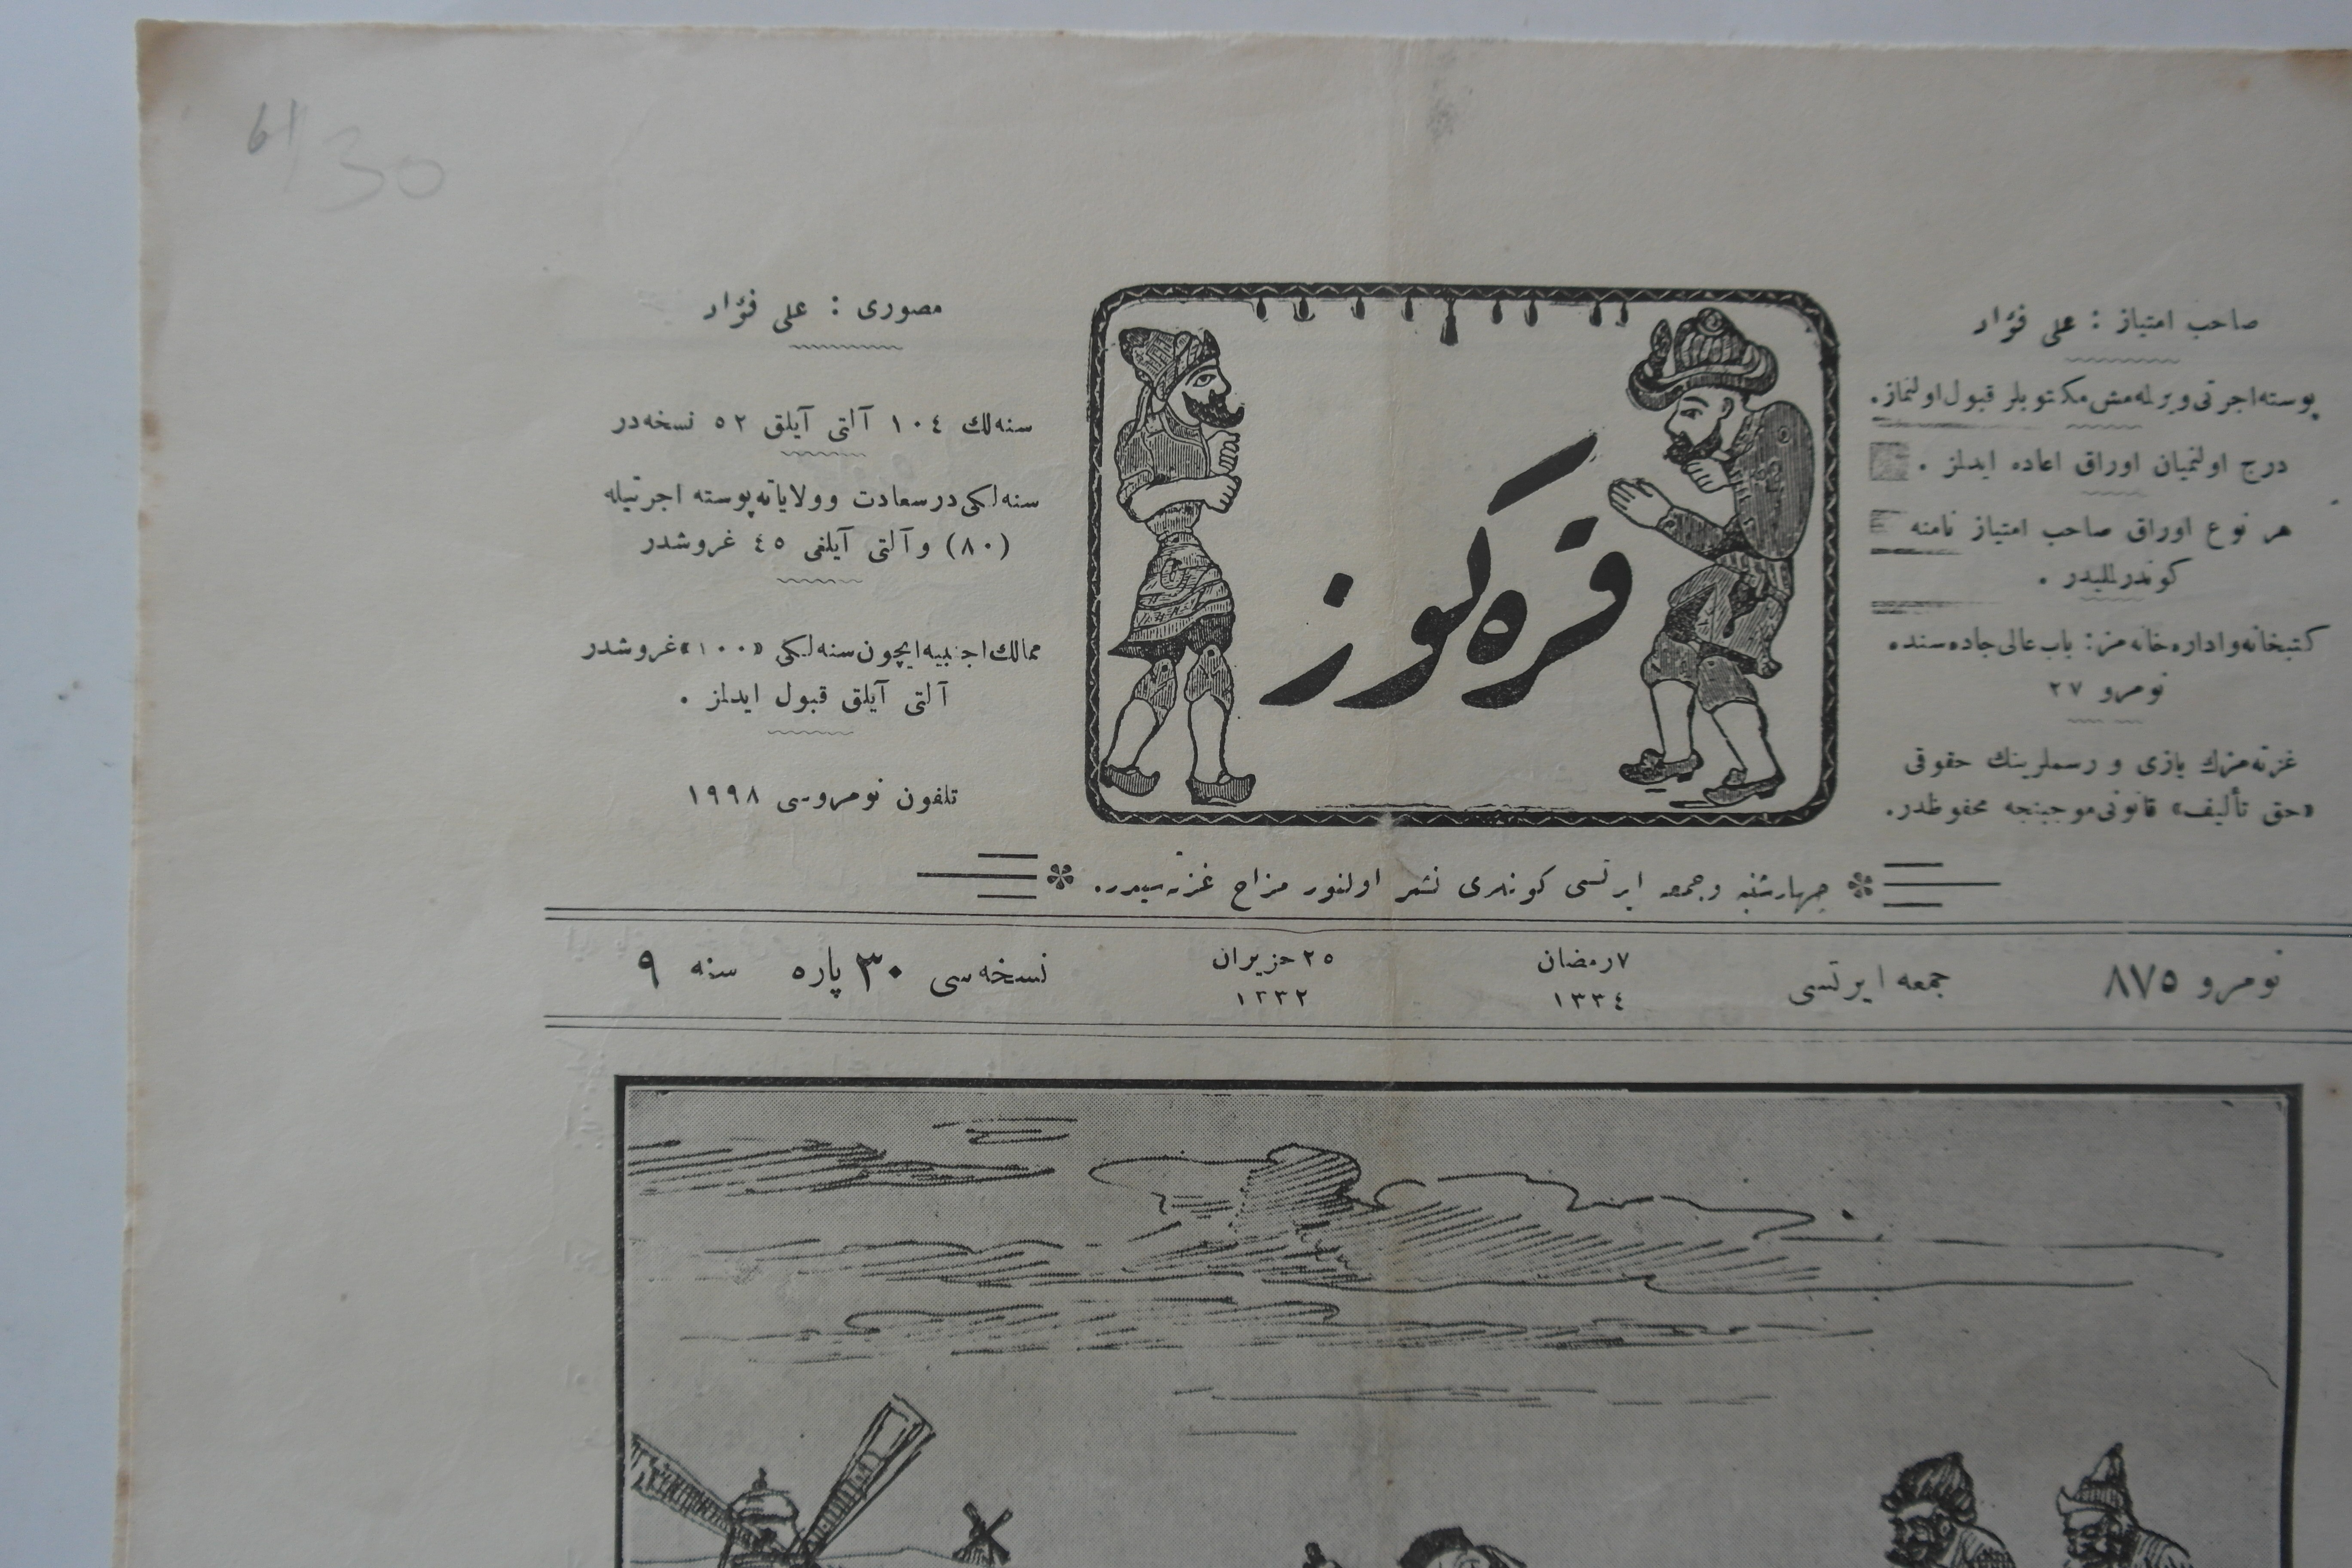 61/30
صاحب امتیاز : علی فؤاد
پوسته اجرتی ویرلمه‌مش مکتوبلر قبول اولنماز.
درج اولنمیان اوراق اعاده ایدلز .
هر نوع اوراق صاحب امتیاز نامنه
کوندرلملیدر .
کتبخانه و اداره‌خانه‌مز: باب عالی جاده‌سنده
نومرو ٢٧
غزته‌مزك یازی و رسملرینك حقوقی
«حق تألیف» قانونی موجبنجه محفوظدر.
قره‌کوز
مصوری : علی فؤاد
سنه‌لك ١٠٤ آلتی آیلق ٥٢ نسخه‌در
سنه‌لکی درسعادت و ولایاته پوسته اجرتیله
(٨٠) و آلتی آیلغی ٤٥ غروشدر
ممالك اجنبیه ایچون سنه‌لکی «١٠٠» غروشدر
آلتی آیلق قبول ایدلز .
تلفون نومروسی ١٩٩٨
چهارشنبه و جمعه ایرتسی کونلری نشر اولنور مزاح غزته‌سیدر.
نومرو ٨٧٥
جمعه ایرتسی
٧ رمضان
١٣٣٤
٢٥ حزیران
١٣٣٢
نسخه‌سی ٣٠ پاره
سنه ٩